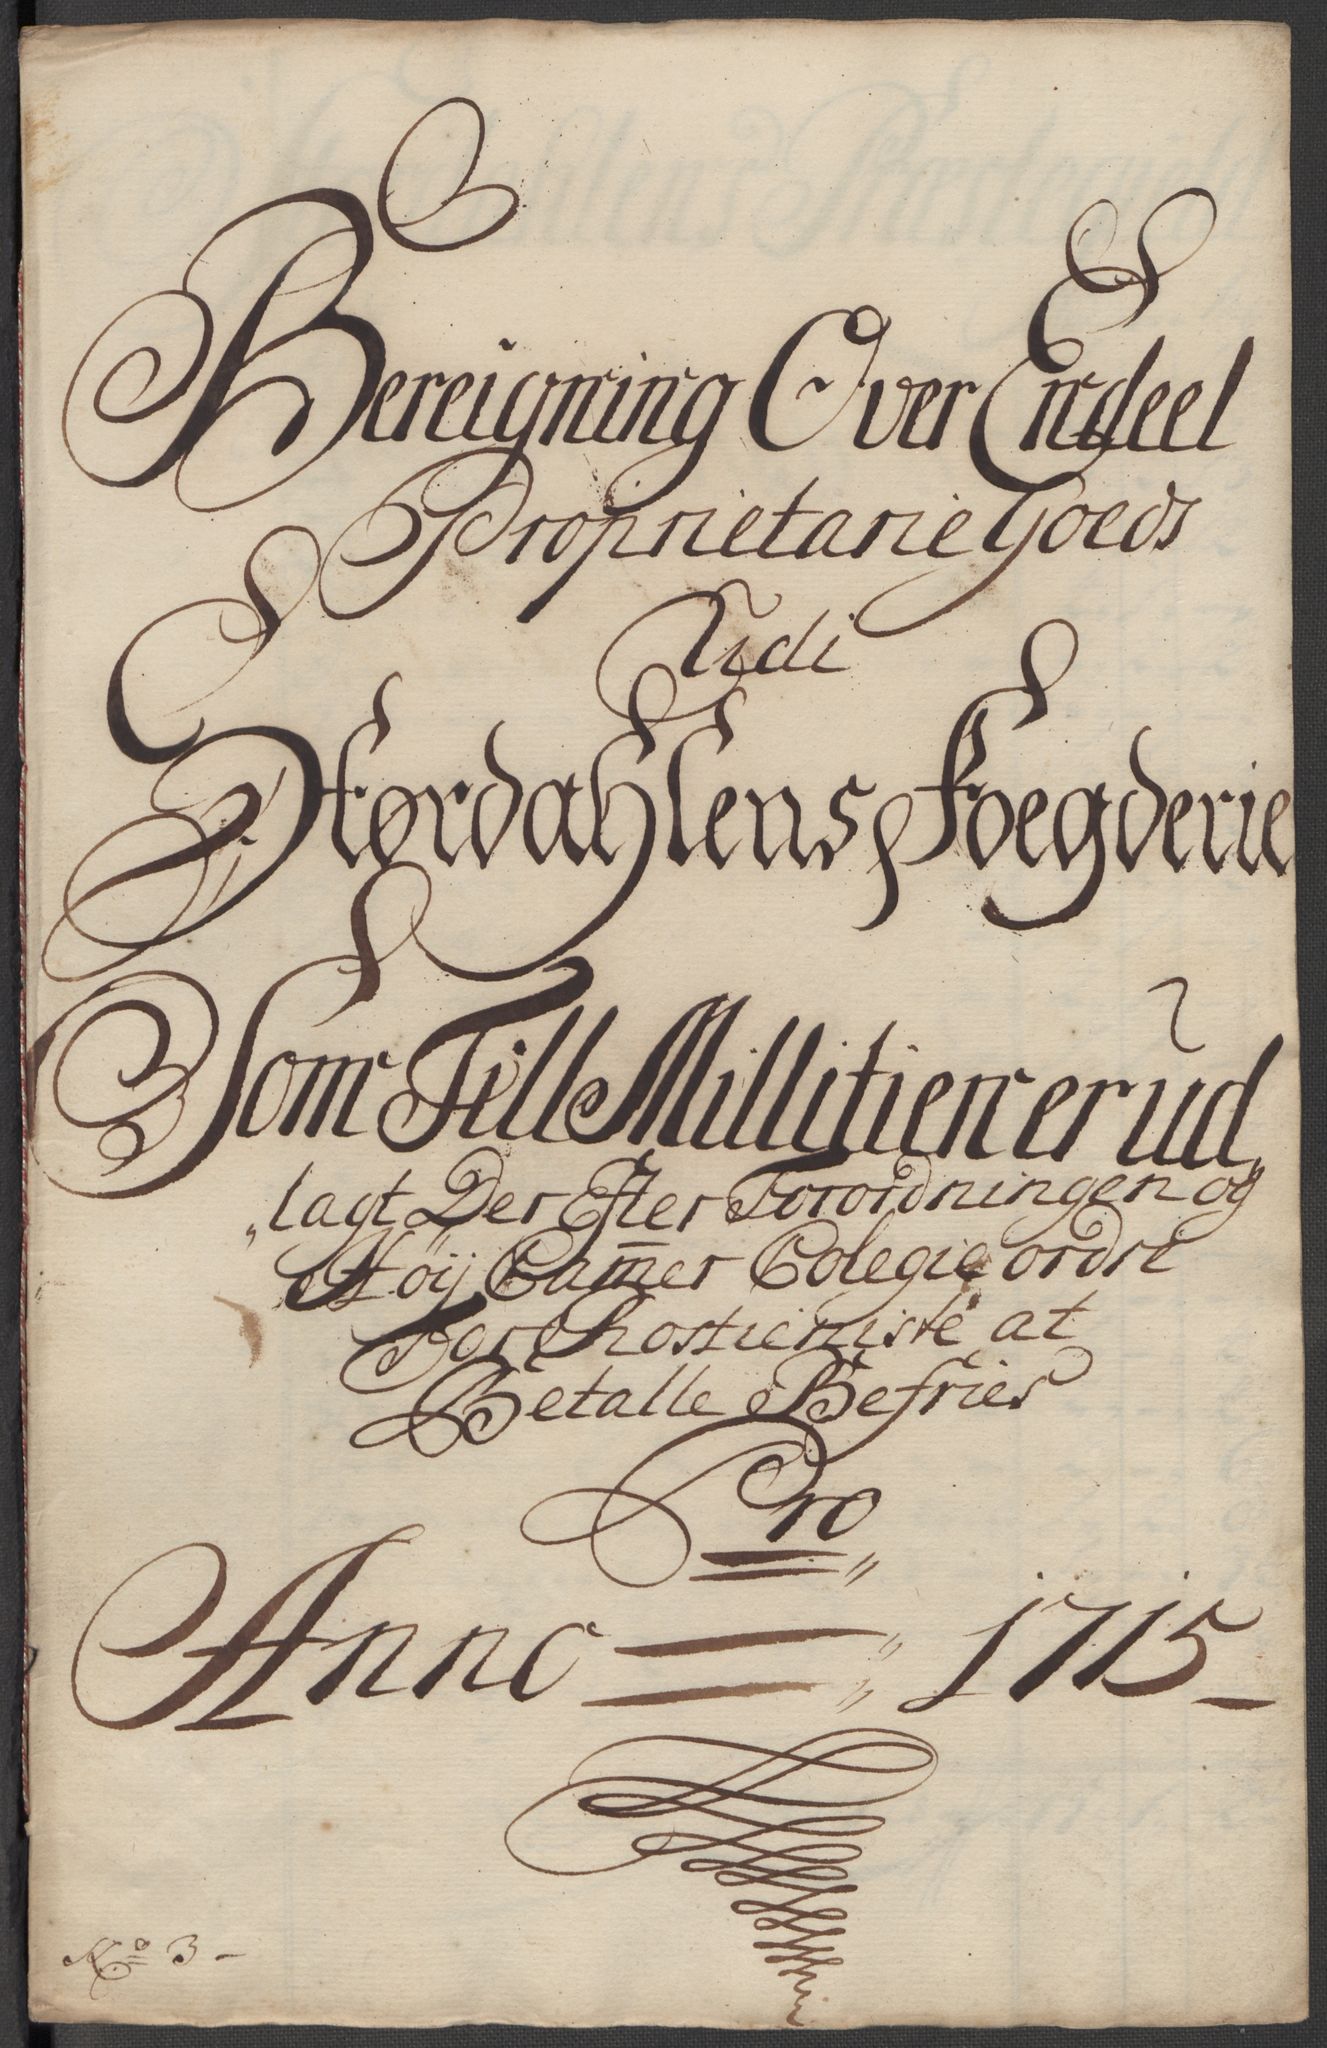 Bereigning Over Endeel
Proprietarie Goeds
Udi
Størdahlens Foegderie
Som Till Millitien er ud„
„lagt Der Efter Forordningen og
Høij Cam̄er Colegie ordre
For Rostieniste at
Betalle Befries
Pro
Anno 1715
No 3